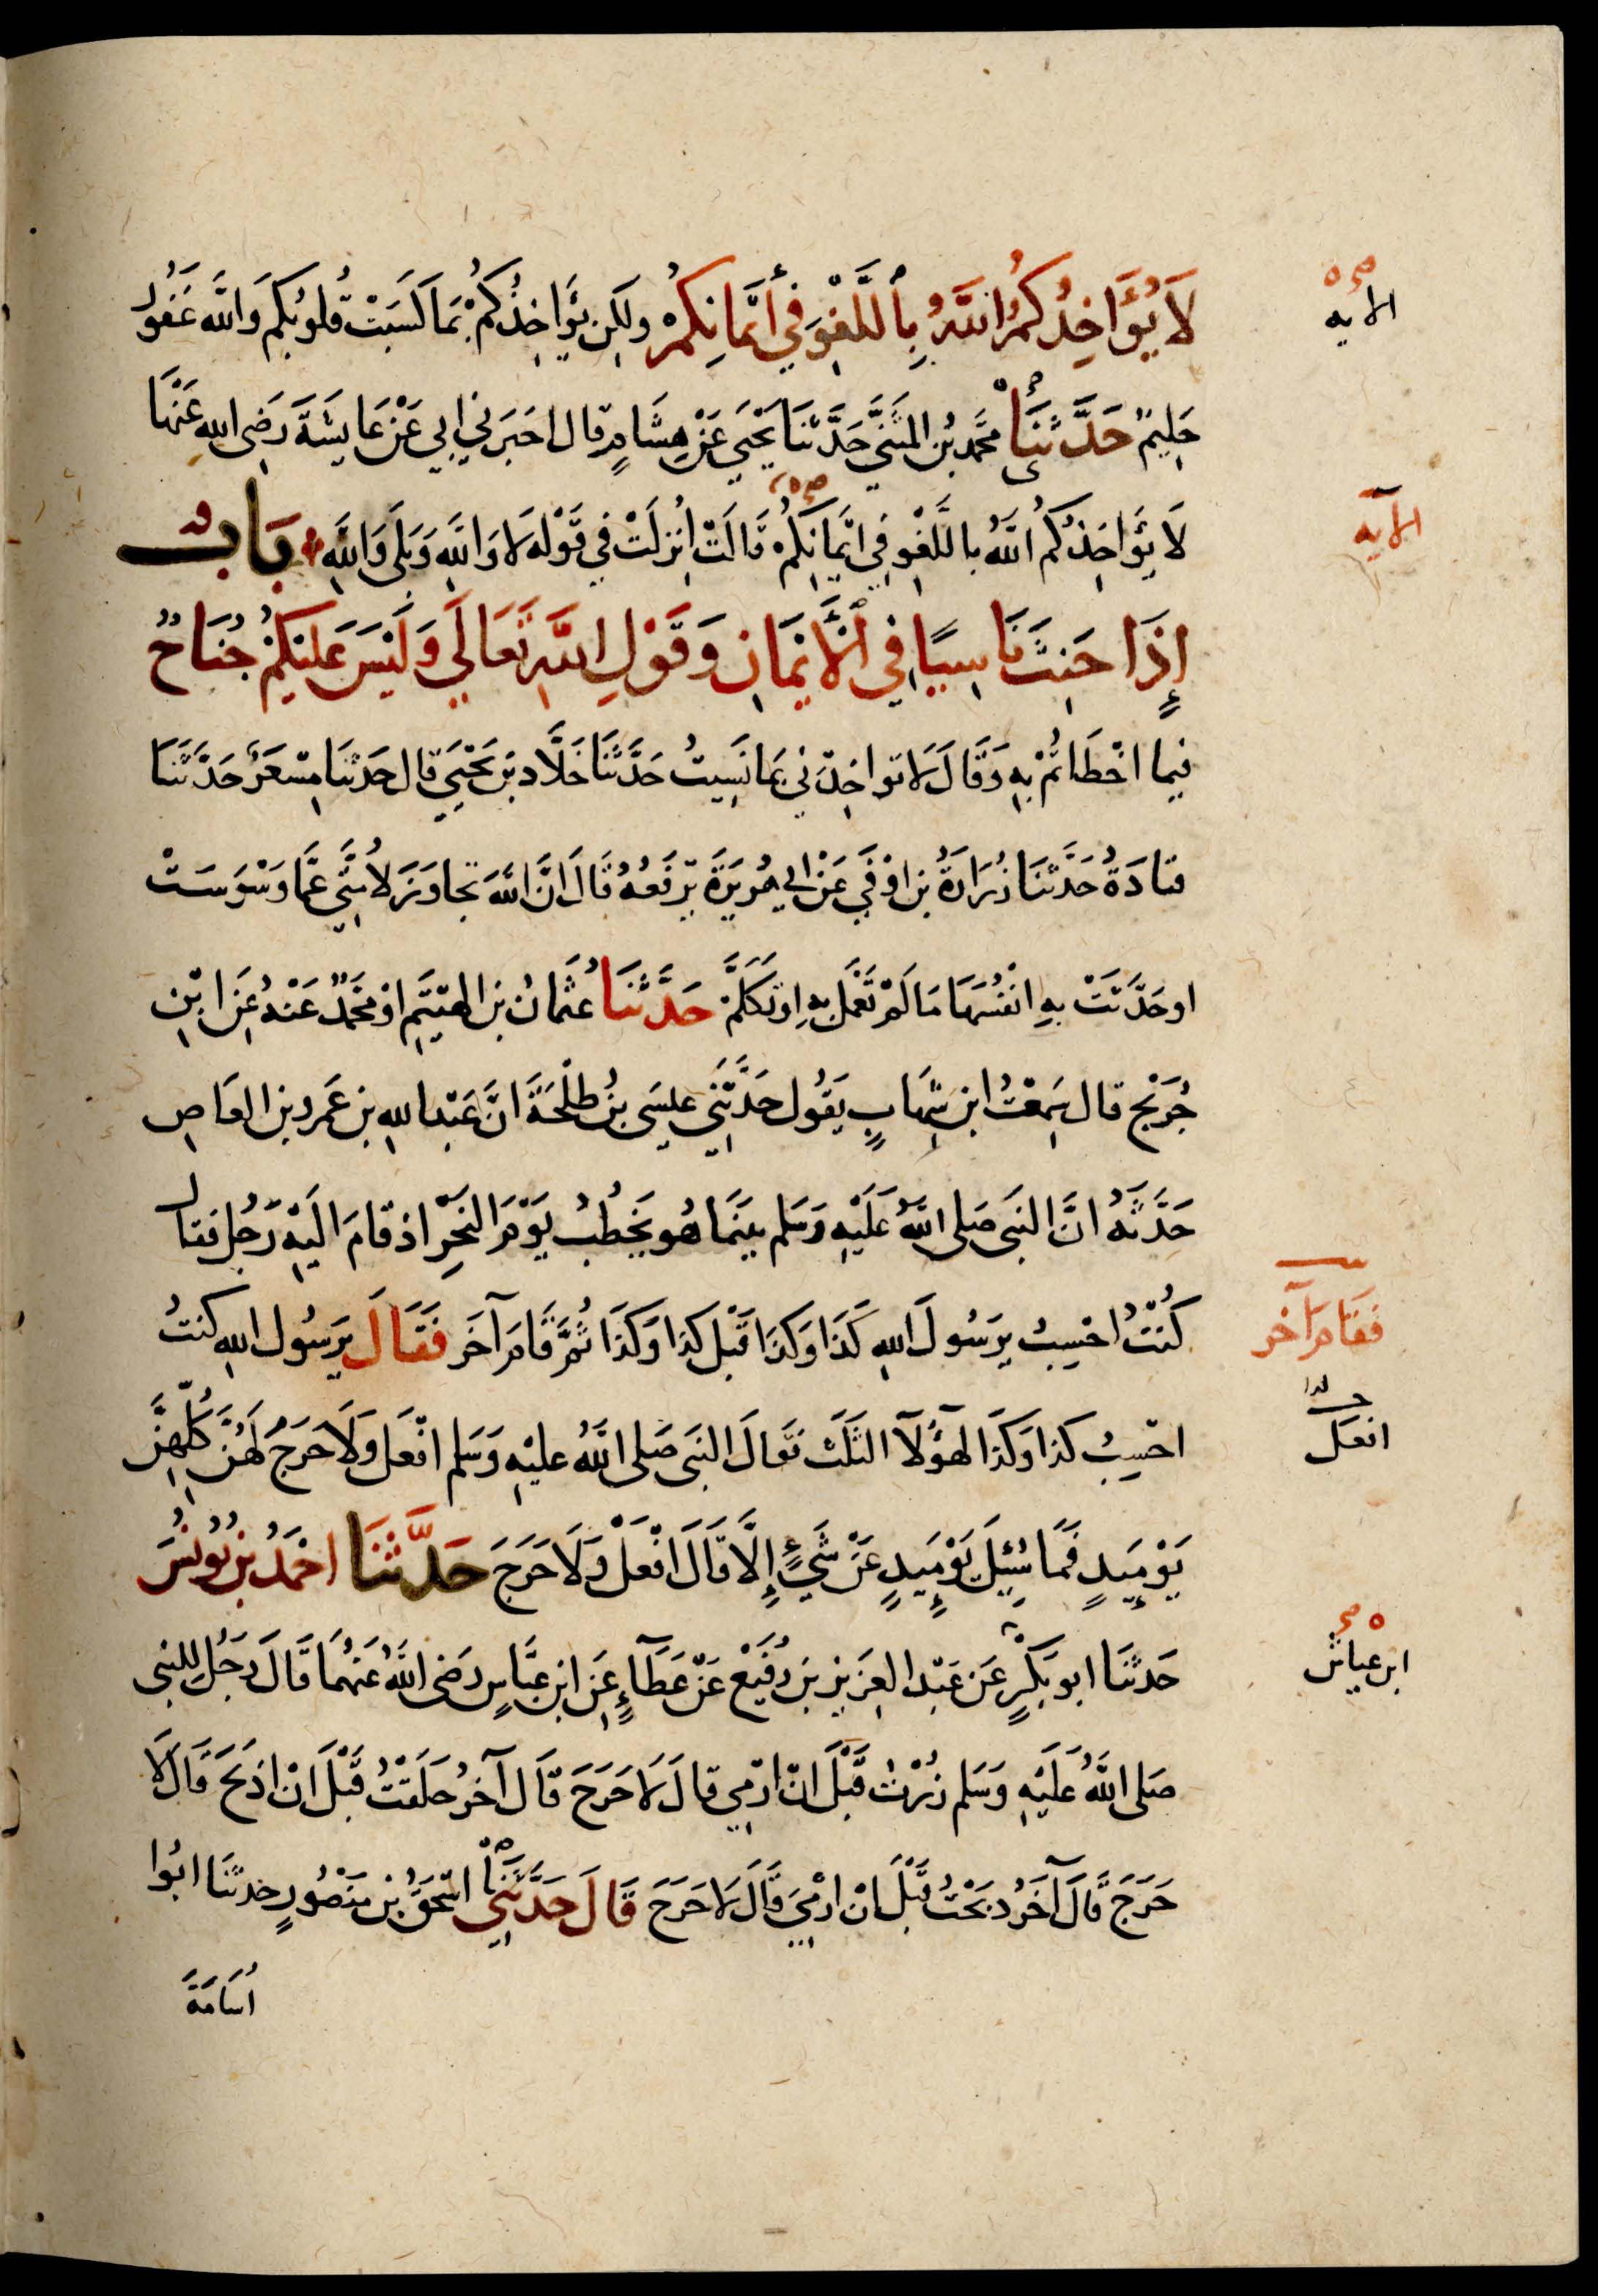 لَا يُؤَاخِذُكُمُ اللَّهُ بِاللَّغْوِ فِي أَيْمَانِكُمْ وَلَكِن يُؤَاخِذُكُمْ بِمَا كَسَبَتْ قُلُوبُكُمْ وَاللَّه غَفُورٌ
الايه
حَلِيمٌ حَدَّثَنَا محَمد بْنُ المثَنَّي حَدَّثَنَا يَحْيَي عَنْ هِشَامٍ قال اخبَرَنِي ابِي عَنْ عَايِشَةَ رَضِى اللهِ عَنْهَا
لَا يُؤَاخِذُكُمُ اللَّهُ بِاللَّغْوِ فِي ايْمَانِكُمْ قَالَتْ اُنزِلَتْ فِي قَوْلِهِ لَا وَاللَّهِ وَبَلَى وَاللَّهِ بَابُ
الآيه
إِذَا حَنِثَ نَاسِيًا فِي الْأَيْمَانِ وَقَوْلِ اللَّهِ تَعَالَي وَلَيْسَ عَلَيْكُمْ جُنَاحٌ
فيما اخْطَاتُمْ بِهِ وَقَالَ لَا تواخِذْنِي بِمَا نَسِيتُ حَدَّثَنَا خَلَّاد بْن يَحْيَي قال حَدثنَا مِسْعَرٌ حَدَّثَنَا
قتادَةُ حَدَّثَنَا زُرَارَةُ بن اوْفَي عَنْ ابي هُرَيْرَةَ يَرْفَعُهُ قَالَ انَّ اللَّه تجَاوَزَ لِأُمَّتِي عَمَّا وَسْوَسَتْ
اوحَدَّثَتْ بِهِ انْفُسَهَا مَا لَمْ تَعْمَل بِهِ اوْ تَكَلَّمْ حَدَّثَنَا عُثمَانُ بن الهَيْثَمِ اوْ مُحَمَّدٌ عَنْهُ عَنِ ابْنِ
جُرَيْجٍ قال سَمِعْتُ ابن شِهَابٍ يَقُول حَدَّثَنِي عيسَى بنُ طَلْحَةَ انَّ عَبْدالله بن عَمرو بن العَاصِ
حَدَّثَهُ انَّ النبَى صَلى اللَّهُ عَلَيْهِ وَسَلم بينَمَا هُو يَخْطُبُ يَوْمَ النَحْرِ اذ قامَ الَيْهِ رَجُل فقال
كُنْتُ احْسِبُ يرَسُولَ اللهِ كَذَا وَكَذَا قَبْل كَذا وَكَذَا ثُمَّ قَامَ آخَر فَقَالَ يرَسُول الله كنتُ
فقَامَ آخر
احْسِبُ كذا وَكذَا لهَؤُلَآ الثَلَث فقَالَ النبَى صَلى اللَّهُ عليْهِ وَسَلم افْعَل وَلَا حَرَجَ لَهُنَّ كُلّهِنَّ
افعَل
يَوْمِيذٍ فَمَا سُئِلَ يَوْمِيذٍ عَنْ شَيْءٍ إِلَّا قَالَ افْعَلْ وَلَا حَرَجَ حَدَّثَنَا احْمَدُ بْن يُونُسَ
حَدثنَا ابو بَكْرٍ عَن عَبْد العَزِيز بن رُفَيْعٍ عَنْ عَطَآءٍ عَن ابْن عبَّاسٍ رَضى اللَّهُ عَنهُمَا قَالَ رَجُل للنبى
ابن عياش
صَلى اللَّهُ عَلَيْهِ وَسَلم زُرْتُ قَبْلَ انْ ارْمِي قالَ لَا حَرَجَ قَالَ آخَرُ حَلَقْتُ قَبْلَ انْ اذبَحَ قَالَ لَا
حَرَجَ قَالَ آخَرُ ذبَحْتُ قَبْلَ انْ ارْمِيَ قَالَ لَا حَرَجَ قَالَ حَدَّثَنِي اسْحَقُ بن مَنصُورٍ حَدثنَا ابُوا
اُسَامَةَ